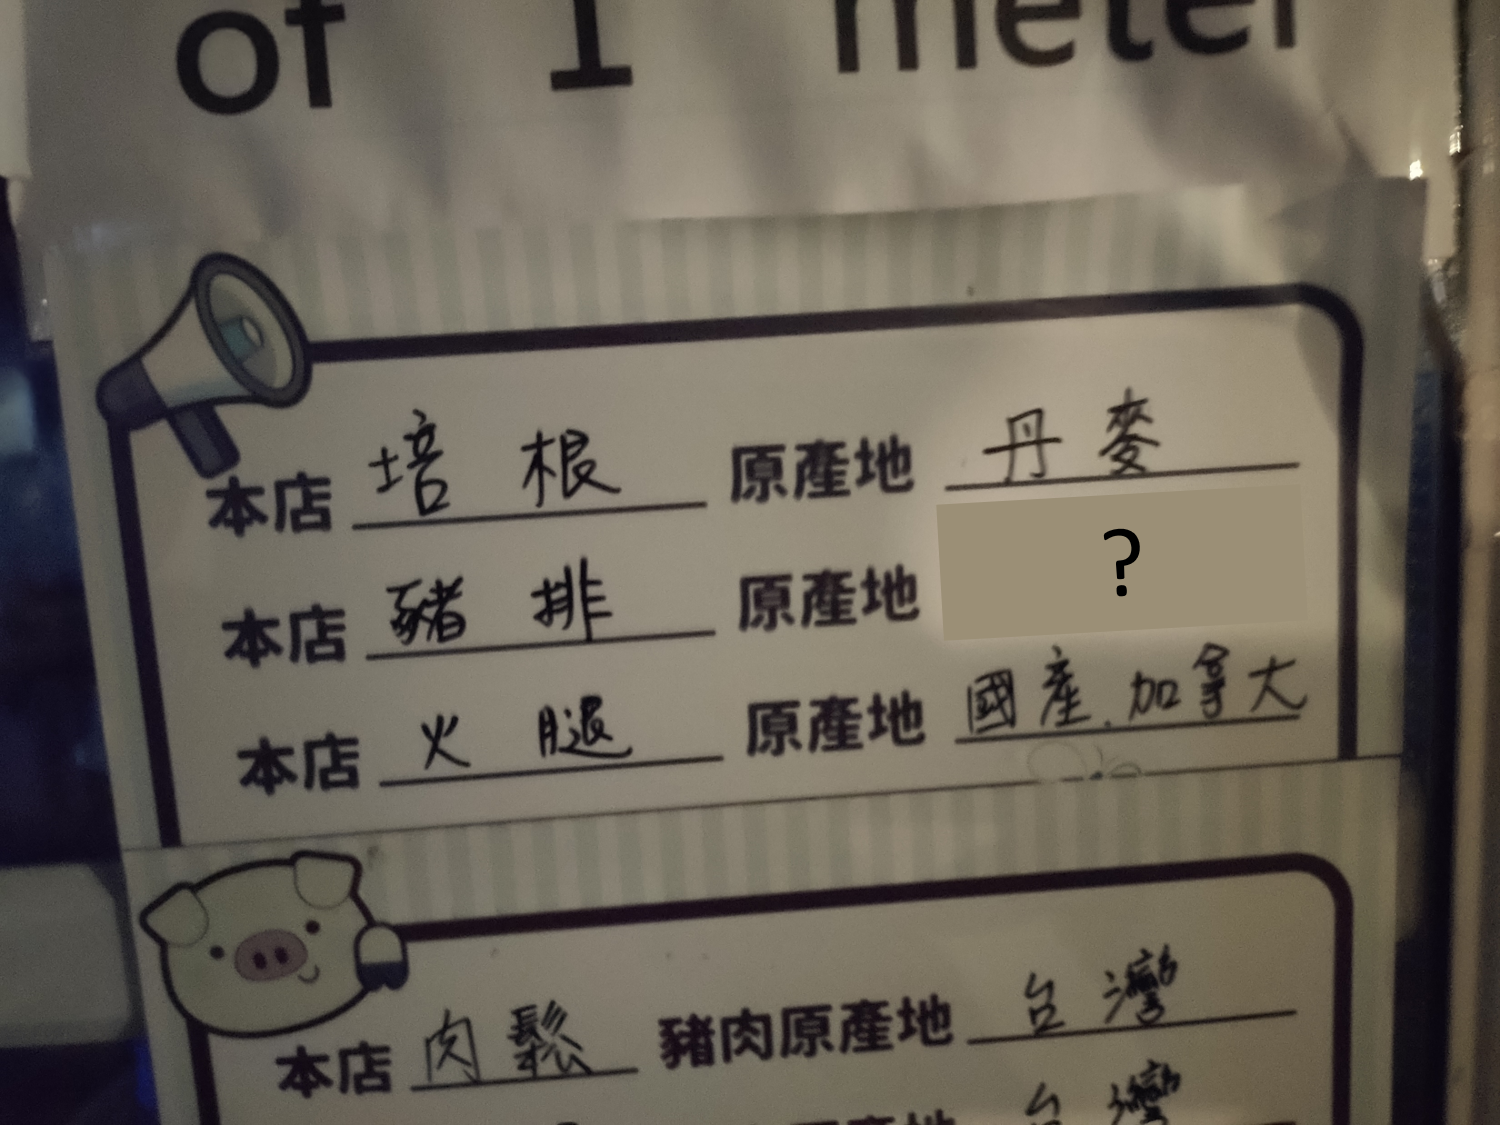 of 1 meter
本店 培根 原產地 丹麥
本店 豬排 原產地 ?
本店 火腿 原產地 國產.加拿大
本店 肉鬆 豬肉原產地 台灣
原產地 台灣